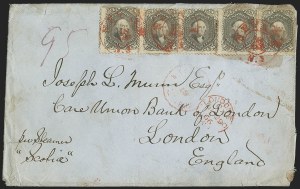 95
Joseph L. Munn Esqr.
Care Union Bank of London
London
England
Per Steamer
"Scotia"